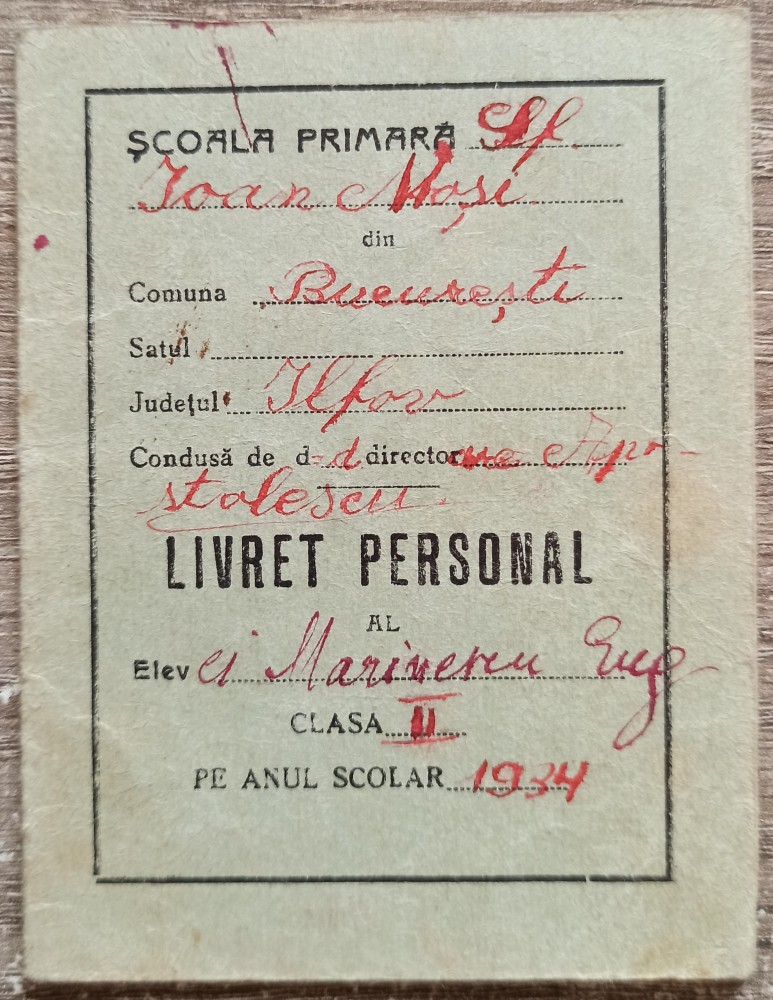 ȘCOALA PRIMARĂ Sf.
Ioan Moși
din
Comuna București
Satul
Județul Ilfov
Condusă de d-d directoare Apo-
stolescu.
LIVRET PERSONAL
AL
Elevei Marinescu Eug
CLASA II
PE ANUL SCOLAR 1934